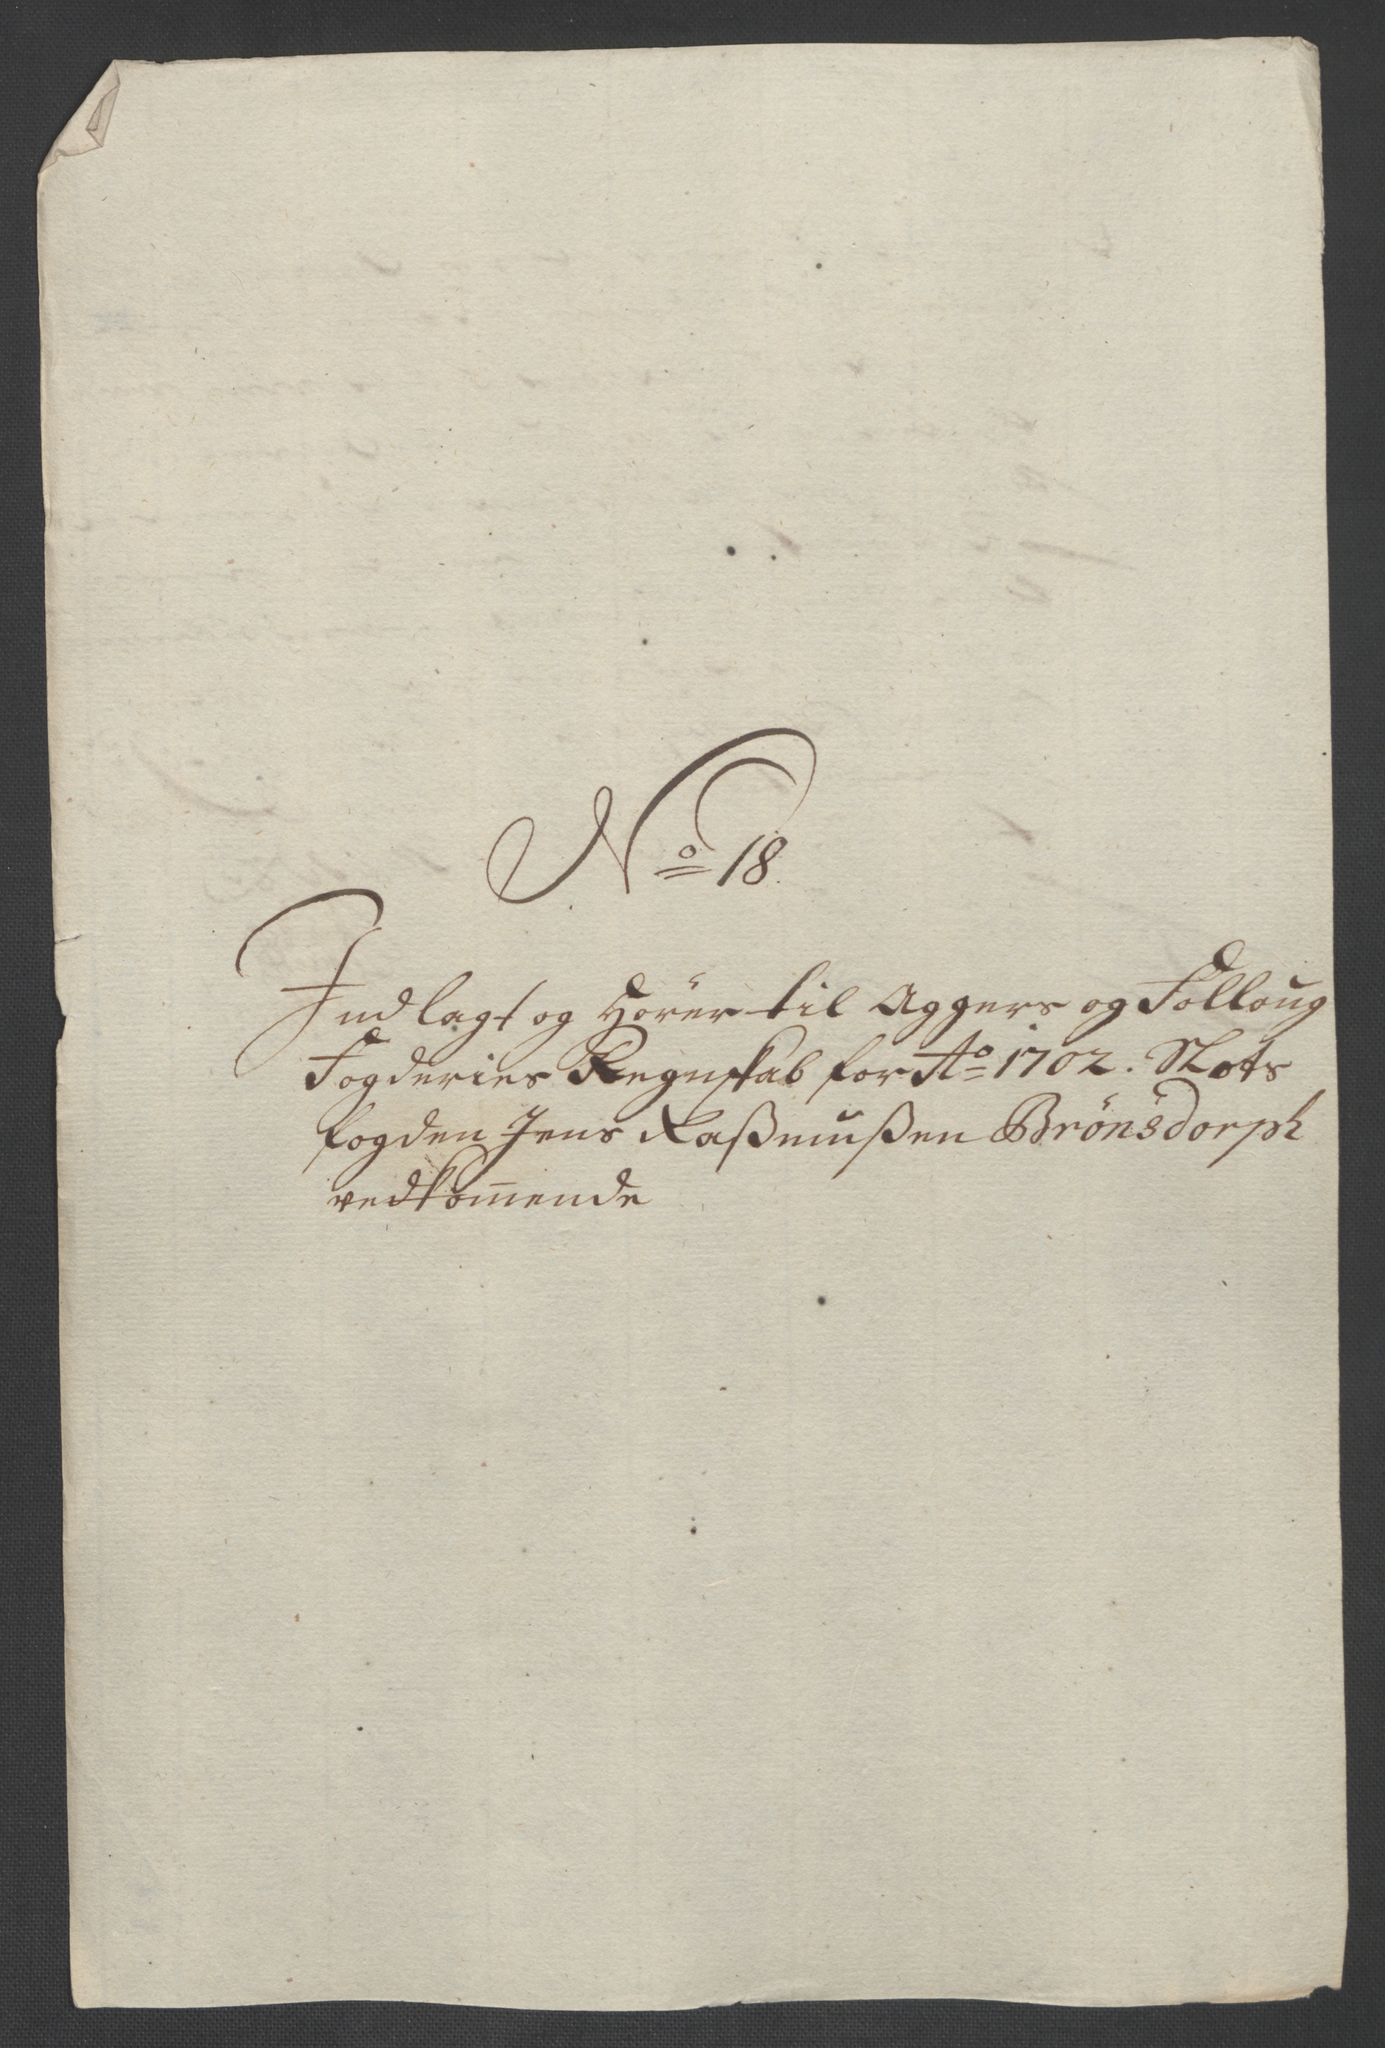 No 18.
Indlagt og Hörer til Aggers og Folloug
Fogderies Regnskab for Ao 1702. Slots
fogden Jens Raßmußen Brönsdorph
vedkom̅ende